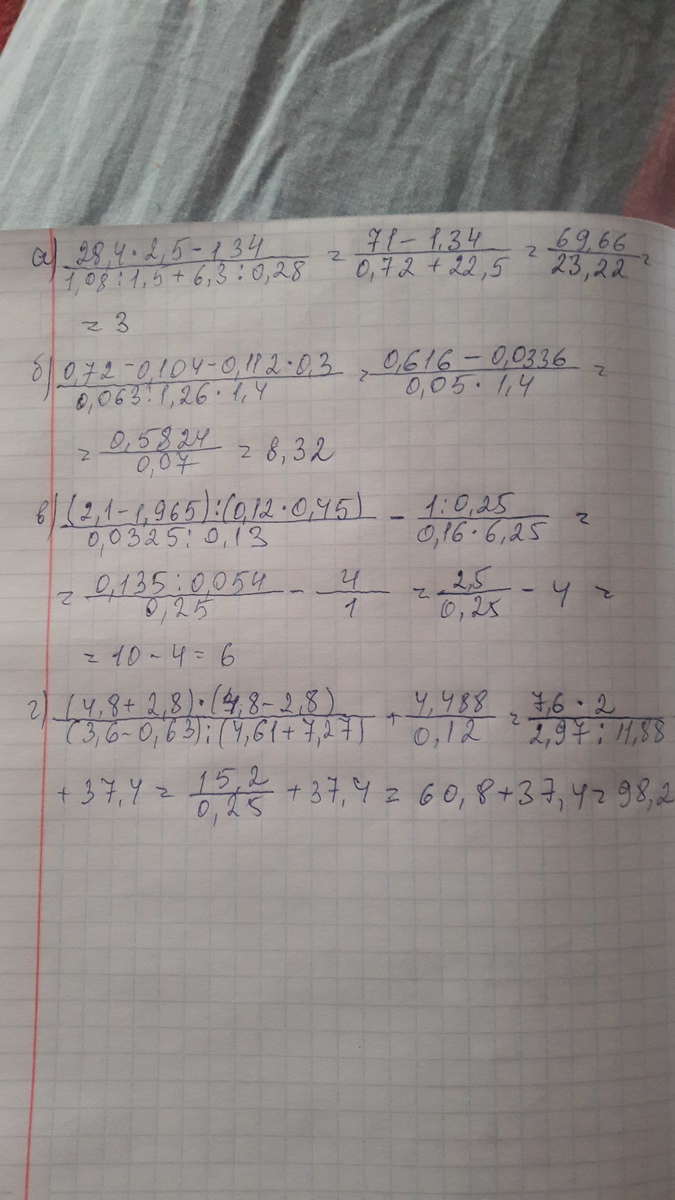 а) (28,4 · 2,5 - 1,34)/(1,08 : 1,5 + 6,3 : 0,28) = (71 - 1,34)/(0,72 + 22,5) = 69,66/23,22 =
= 3
б) (0,72 - 0,104 - 0,112 · 0,3)/(0,063 : 1,26 · 1,4) = (0,616 - 0,0336)/(0,05 · 1,4) =
= 0,5824/0,07 = 8,32
в) ((2,1 - 1,965) : (0,12 · 0,45))/(0,0325 : 0,13) - (1 : 0,25)/(0,16 · 6,25) =
= (0,135 : 0,054)/0,25 - 4/1 = 2,5/0,25 - 4 =
= 10 - 4 = 6
г) ((4,8 + 2,8) · (4,8 - 2,8))/((3,6 - 0,63) : (4,61 + 7,27)) + 4,488/0,12 = (7,6 · 2)/(2,97 : 11,88)
+ 37,4 = 15,2/0,25 + 37,4 = 60,8 + 37,4 = 98,2